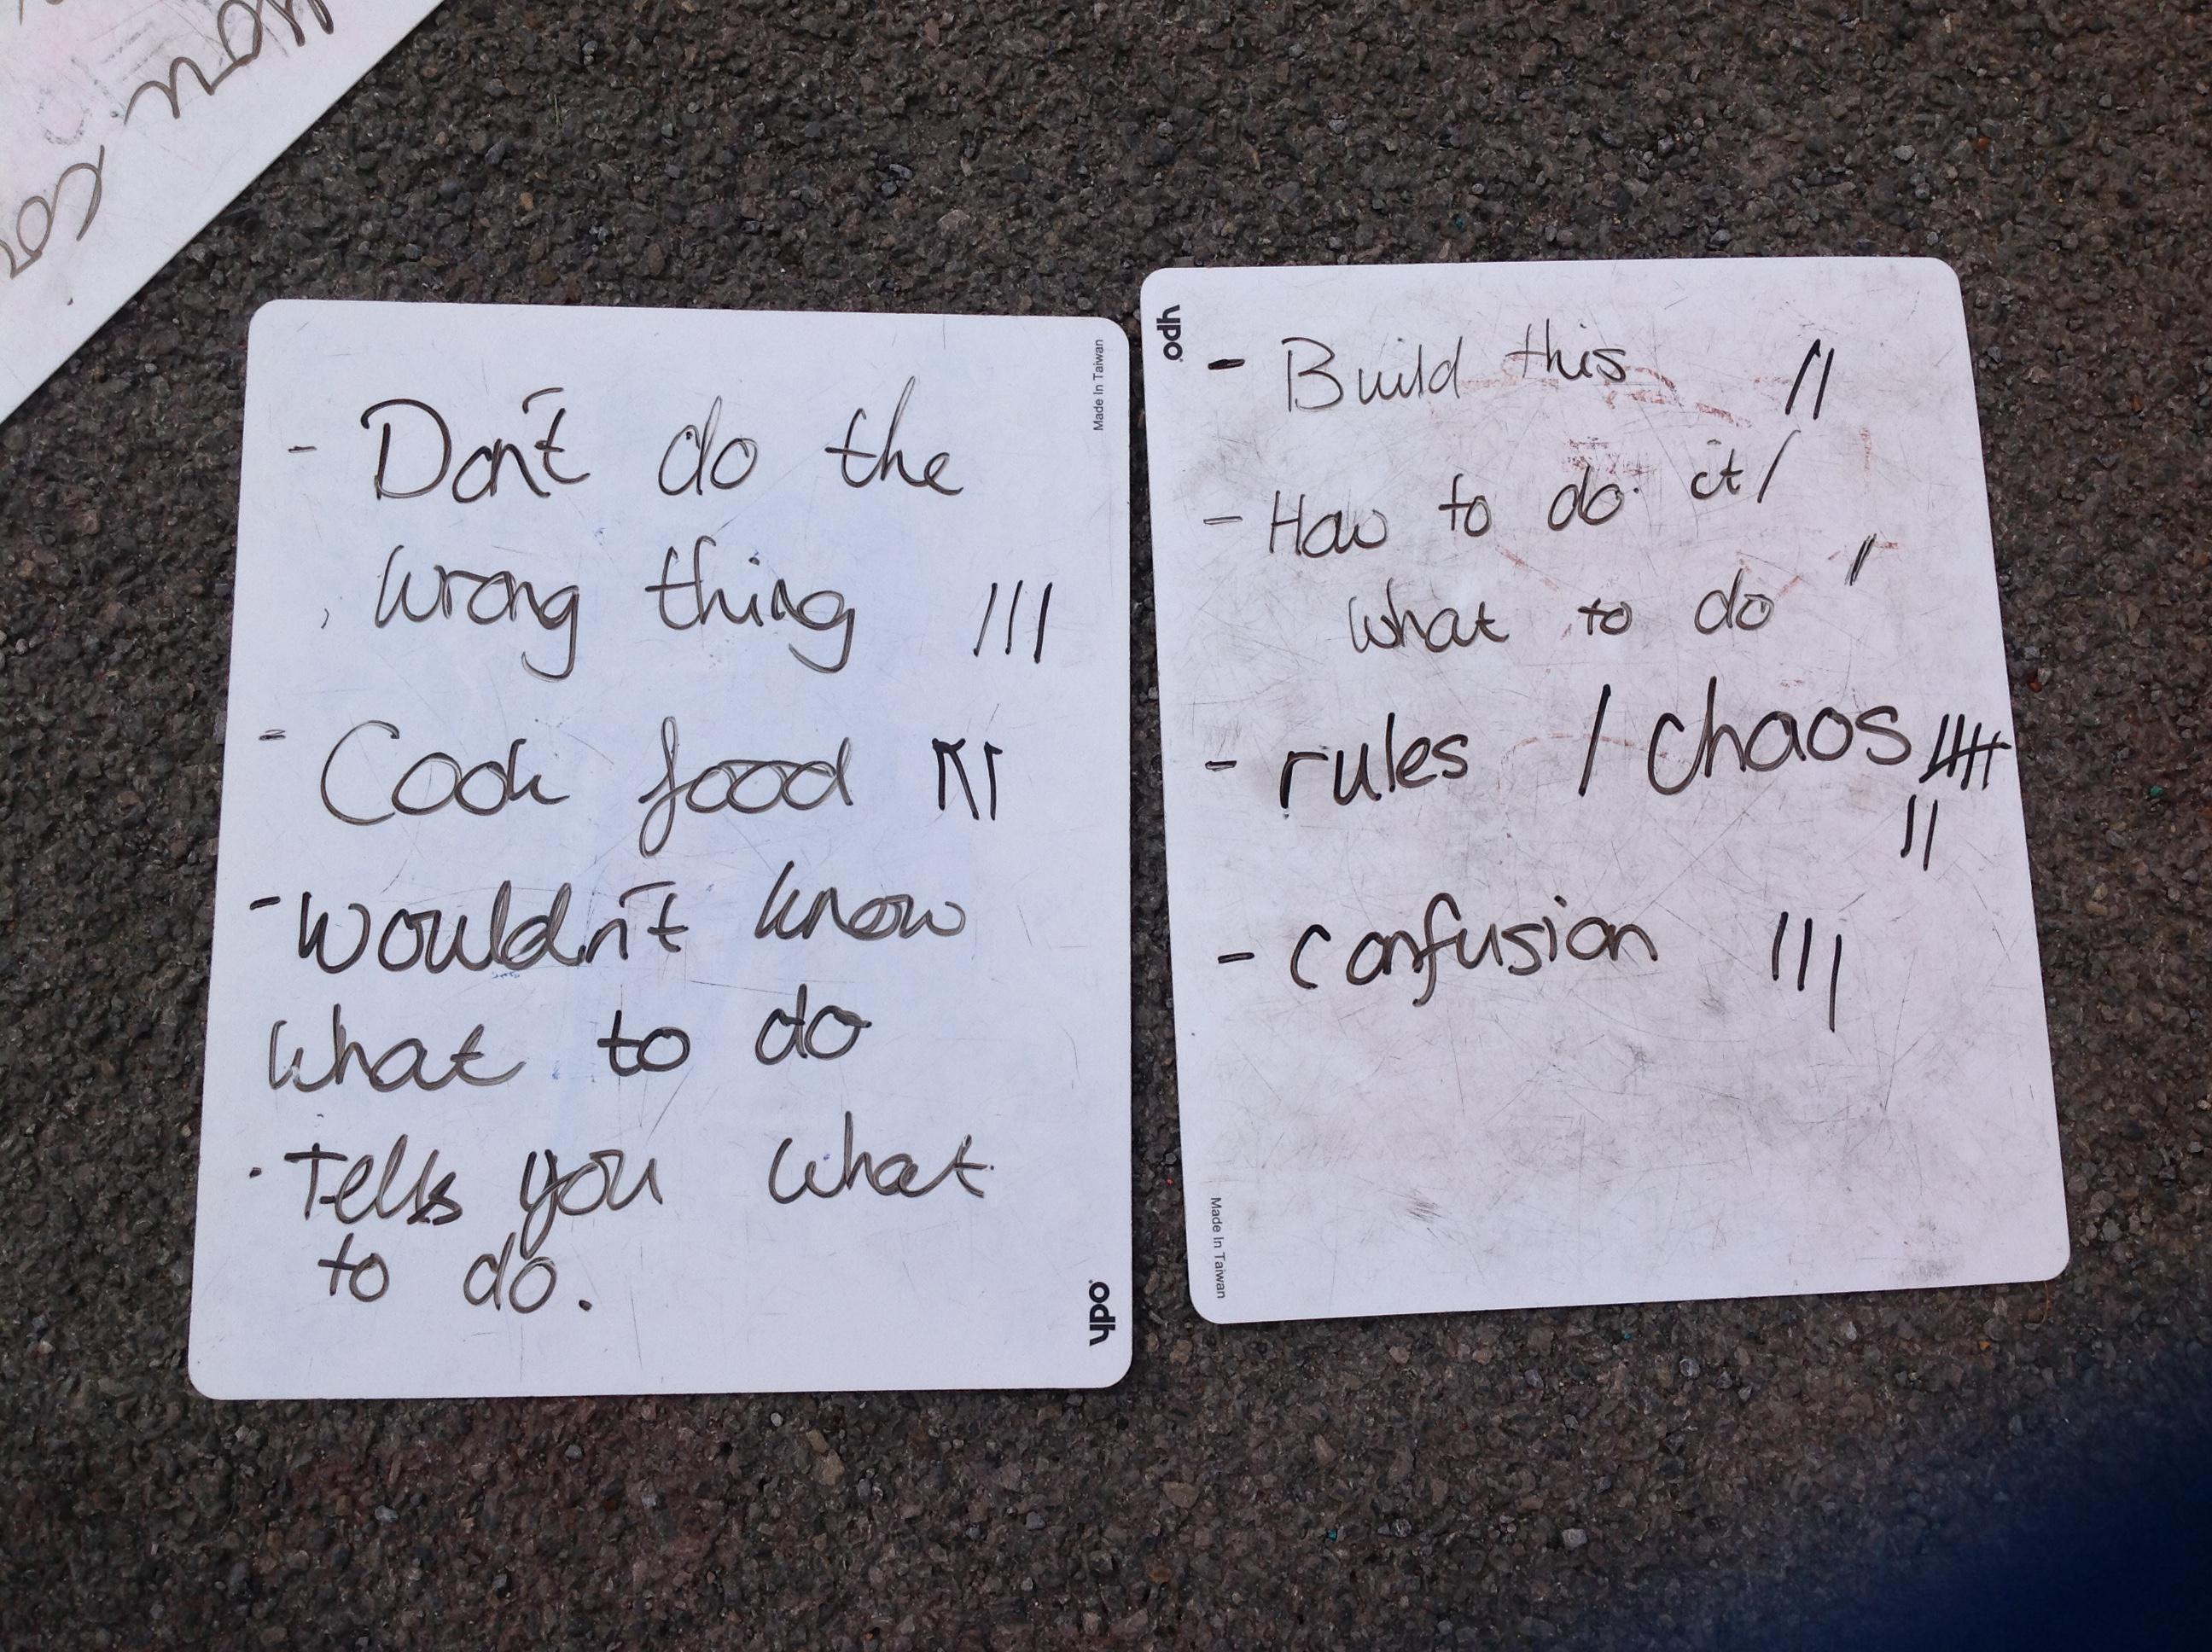 you
con
Made In Taiwan
- Don't do the
wrong thing |||
- Cook food |||
- Wouldn't know
what to do
· Tells you what
to do.
odh
odh
- Build this ||
- How to do it/
what to do |
- rules / chaos |||||
||
- confusion |||
Made In Taiwan